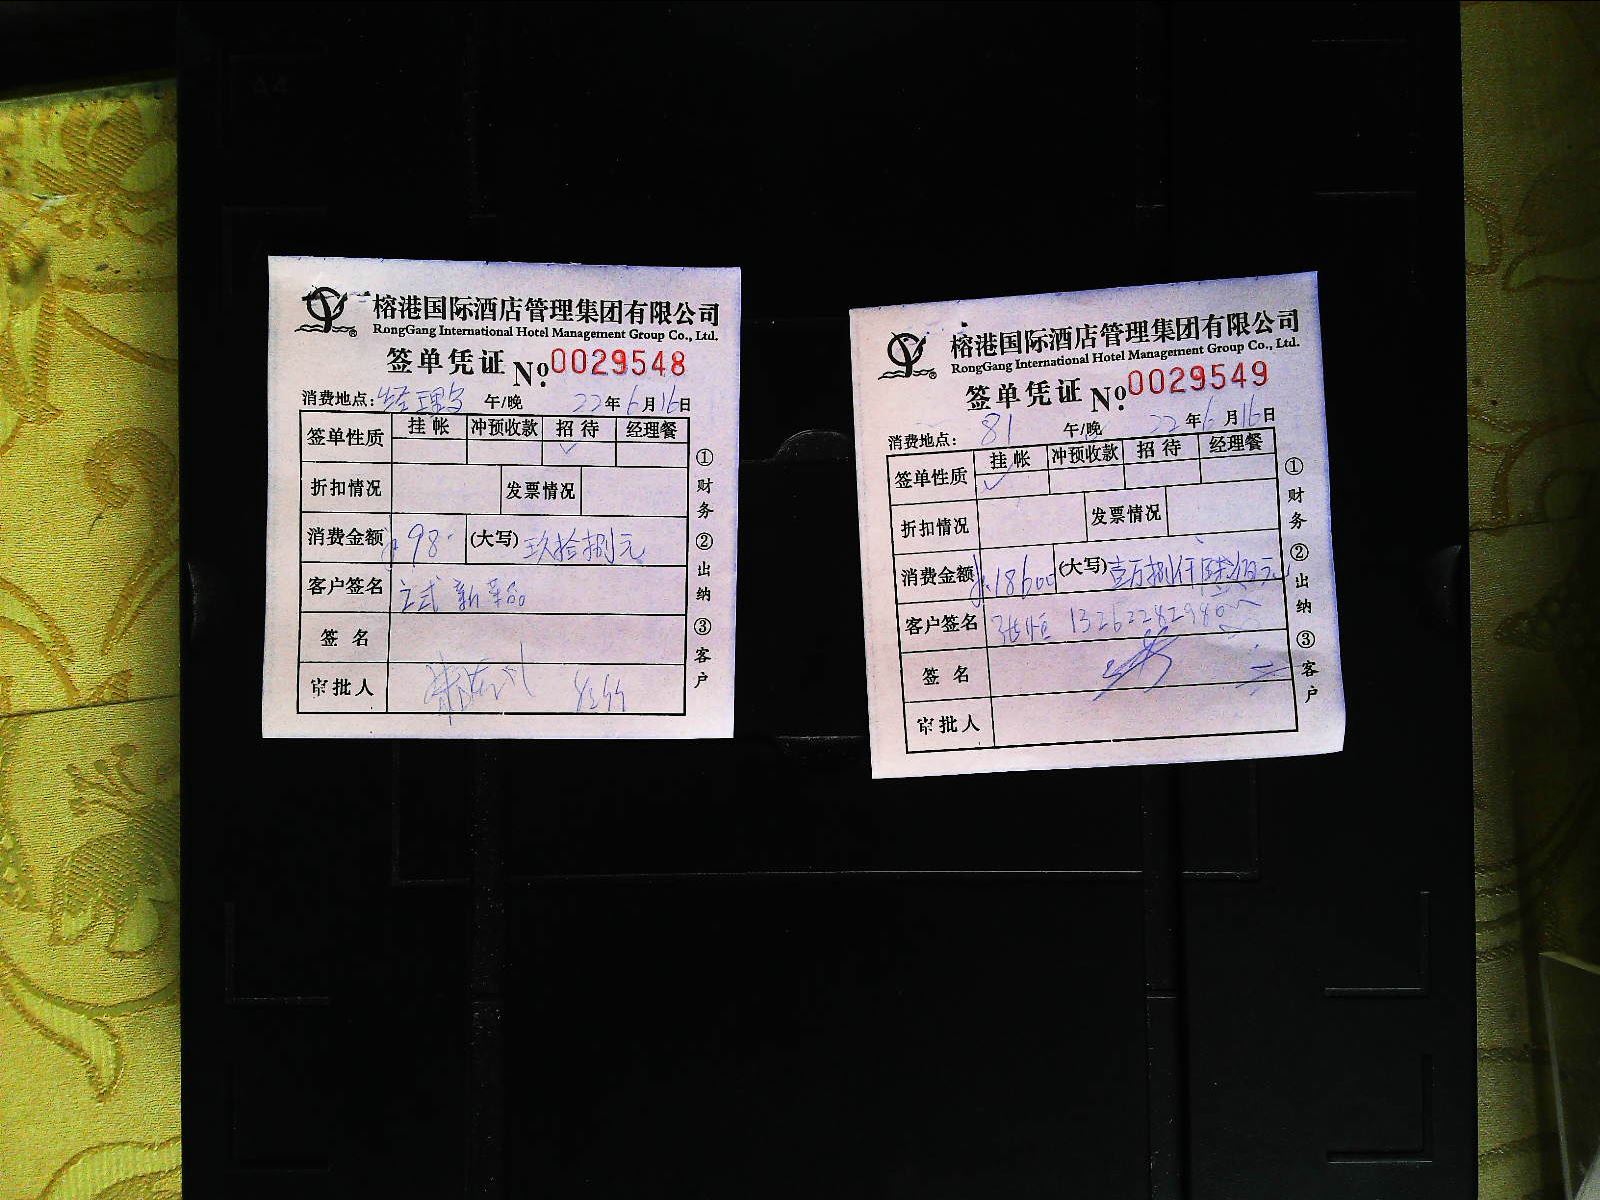 榕港国际酒店管理集团有限公司
RongGang International Hotel Management Group Co., Ltd.
签单凭证 No. 0029548
消费地点: 经理 午/晚 22年6月16日
签单性质 挂帐 冲预收款 招待 经理餐
✓
折扣情况 发票情况
消费金额 ¥98. (大写) 玖拾捌元
客户签名 立式新菜品
签名
审批人
①财务②出纳③客户
榕港国际酒店管理集团有限公司
RongGang International Hotel Management Group Co., Ltd.
签单凭证 No. 0029549
消费地点: 81 午/晚 22年6月16日
签单性质 挂帐 冲预收款 招待 经理餐
✓
折扣情况 发票情况
消费金额 ¥18600 (大写) 壹万捌仟陆佰元
客户签名 张恒 13262282980
签名
审批人
①财务②出纳③客户